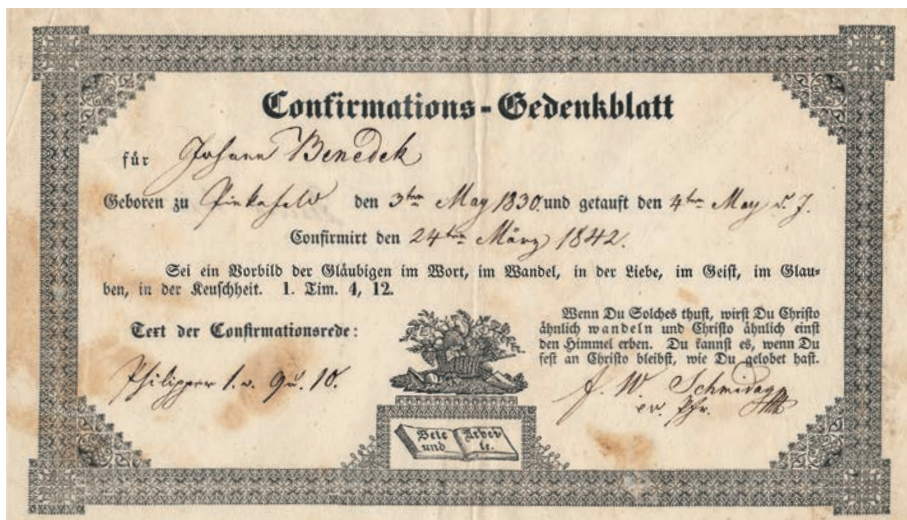 Confirmations-Gedenkblatt
für Johann Benedek
Geboren zu Pinkafeld den 3ten May 1830 und getauft den 4ten May d. J.
Confirmirt den 24ten März 1842.
Sei ein Vorbild der Gläubigen im Wort, im Wandel, in der Liebe, im Geist, im Glau-
ben, in der Keuschheit. 1. Tim. 4, 12.
Text der Confirmationsrede:
Philipper 1. v. 9 u. 10.
Wenn Du Solches thust, wirst Du Christo
ähnlich wandeln und Christo ähnlich einst
den Himmel erben. Du kannst es, wenn Du
fest an Christo bleibst, wie Du gelobet hast.
J. W. Schmidagg
ev. Pfr.
Bete
und
Arbei
te.